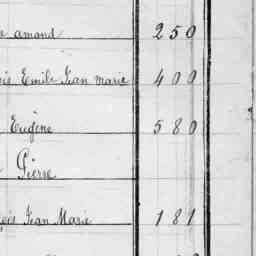 amand 250
Emile Jean marie 400
Eugène 580
Pierre
Jean Marie 181